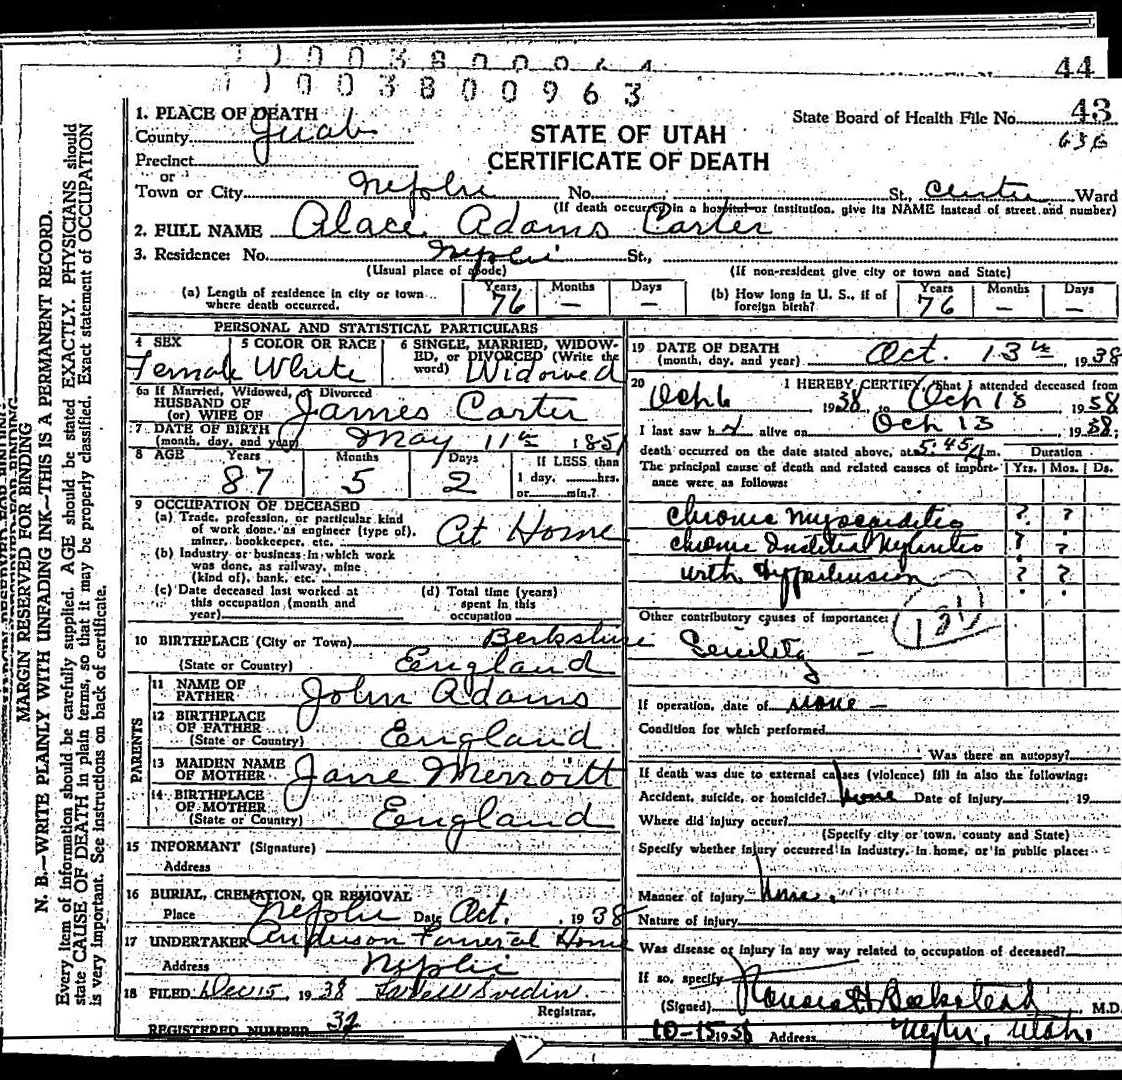 44
1 1 0 0 3 8 0 0 9 6 3
43
1. PLACE OF DEATH
State Board of Health File No.
636
County Juab
STATE OF UTAH
CERTIFICATE OF DEATH
Precinct
or
Town or City Nephi No. St., Ward
(If death occurred in a hospital or institution, give its NAME instead of street and number)
2. FULL NAME Alace Adams Carter
3. Residence: No. Nephi St.,
(Usual place of abode) (If non-resident give city or town and State)
(a) Length of residence in city or town where death occurred. Years 76 Months — Days —
(b) How long in U. S., if of foreign birth? Years 76 Months — Days —
PERSONAL AND STATISTICAL PARTICULARS
4 SEX Female
5 COLOR OR RACE White
6 SINGLE, MARRIED, WIDOWED, or DIVORCED (Write the word) Widowed
6a If Married, Widowed, or Divorced
HUSBAND OF
(or) WIFE OF James Carter
7 DATE OF BIRTH
(month, day, and year) May 11th 1851
8 AGE Years 87 Months 5 Days 2
If LESS than
1 day, hrs.
or min.?
9 OCCUPATION OF DECEASED
(a) Trade, profession, or particular kind
of work done, as engineer (type of),
miner, bookkeeper, etc. At Home
(b) Industry or business in which work
was done, as railway, mine
(kind of), bank, etc.
(c) Date deceased last worked at
this occupation (month and
year)
(d) Total time (years)
spent in this
occupation
10 BIRTHPLACE (City or Town) Berkshire
(State or Country) England
PARENTS
11 NAME OF
FATHER John Adams
12 BIRTHPLACE
OF FATHER England
(State or Country)
13 MAIDEN NAME
OF MOTHER Jane Merroitt
14 BIRTHPLACE
OF MOTHER England
(State or Country)
15 INFORMANT (Signature)
Address
16 BURIAL, CREMATION, OR REMOVAL
Place Nephi Date Oct. , 1938
17 UNDERTAKER Anderson Funeral Home
Address Nephi
18 FILED Dec 15, 1938
Registrar.
REGISTERED NUMBER 32
19 DATE OF DEATH
(month, day, and year) Oct. 13th 1938
20 I HEREBY CERTIFY, That I attended deceased from
Oct 6 1938, to Oct 13 1938
I last saw h alive on Oct 13 1938;
death occurred on the date stated above, at 5:45 A m.
The principal cause of death and related causes of importance were as follows:
Duration
Yrs. Mos. Ds.
Chronic Myocarditis ? ?
Chronic Interstitial Nephritis ? ?
with Hypertension ? ?
131
Other contributory causes of importance:
Senility —
If operation, date of none —
Condition for which performed
Was there an autopsy?
If death was due to external causes (violence) fill in also the following:
Accident, suicide, or homicide? None Date of injury 19
Where did injury occur?
(Specify city or town, county and State)
Specify whether injury occurred in industry, in home, or in public place:
Manner of injury None.
Nature of injury
Was disease or injury in any way related to occupation of deceased?
If so, specify
(Signed) Beckstead M.D.
10-15 1938 Address Nephi, Utah.
MARGIN RESERVED FOR BINDING
N. B.—WRITE PLAINLY, WITH UNFADING INK—THIS IS A PERMANENT RECORD.
Every item of information should be carefully supplied. AGE should be stated EXACTLY. PHYSICIANS should
state CAUSE OF DEATH in plain terms, so that it may be properly classified. Exact statement of OCCUPATION
is very important. See instructions on back of certificate.